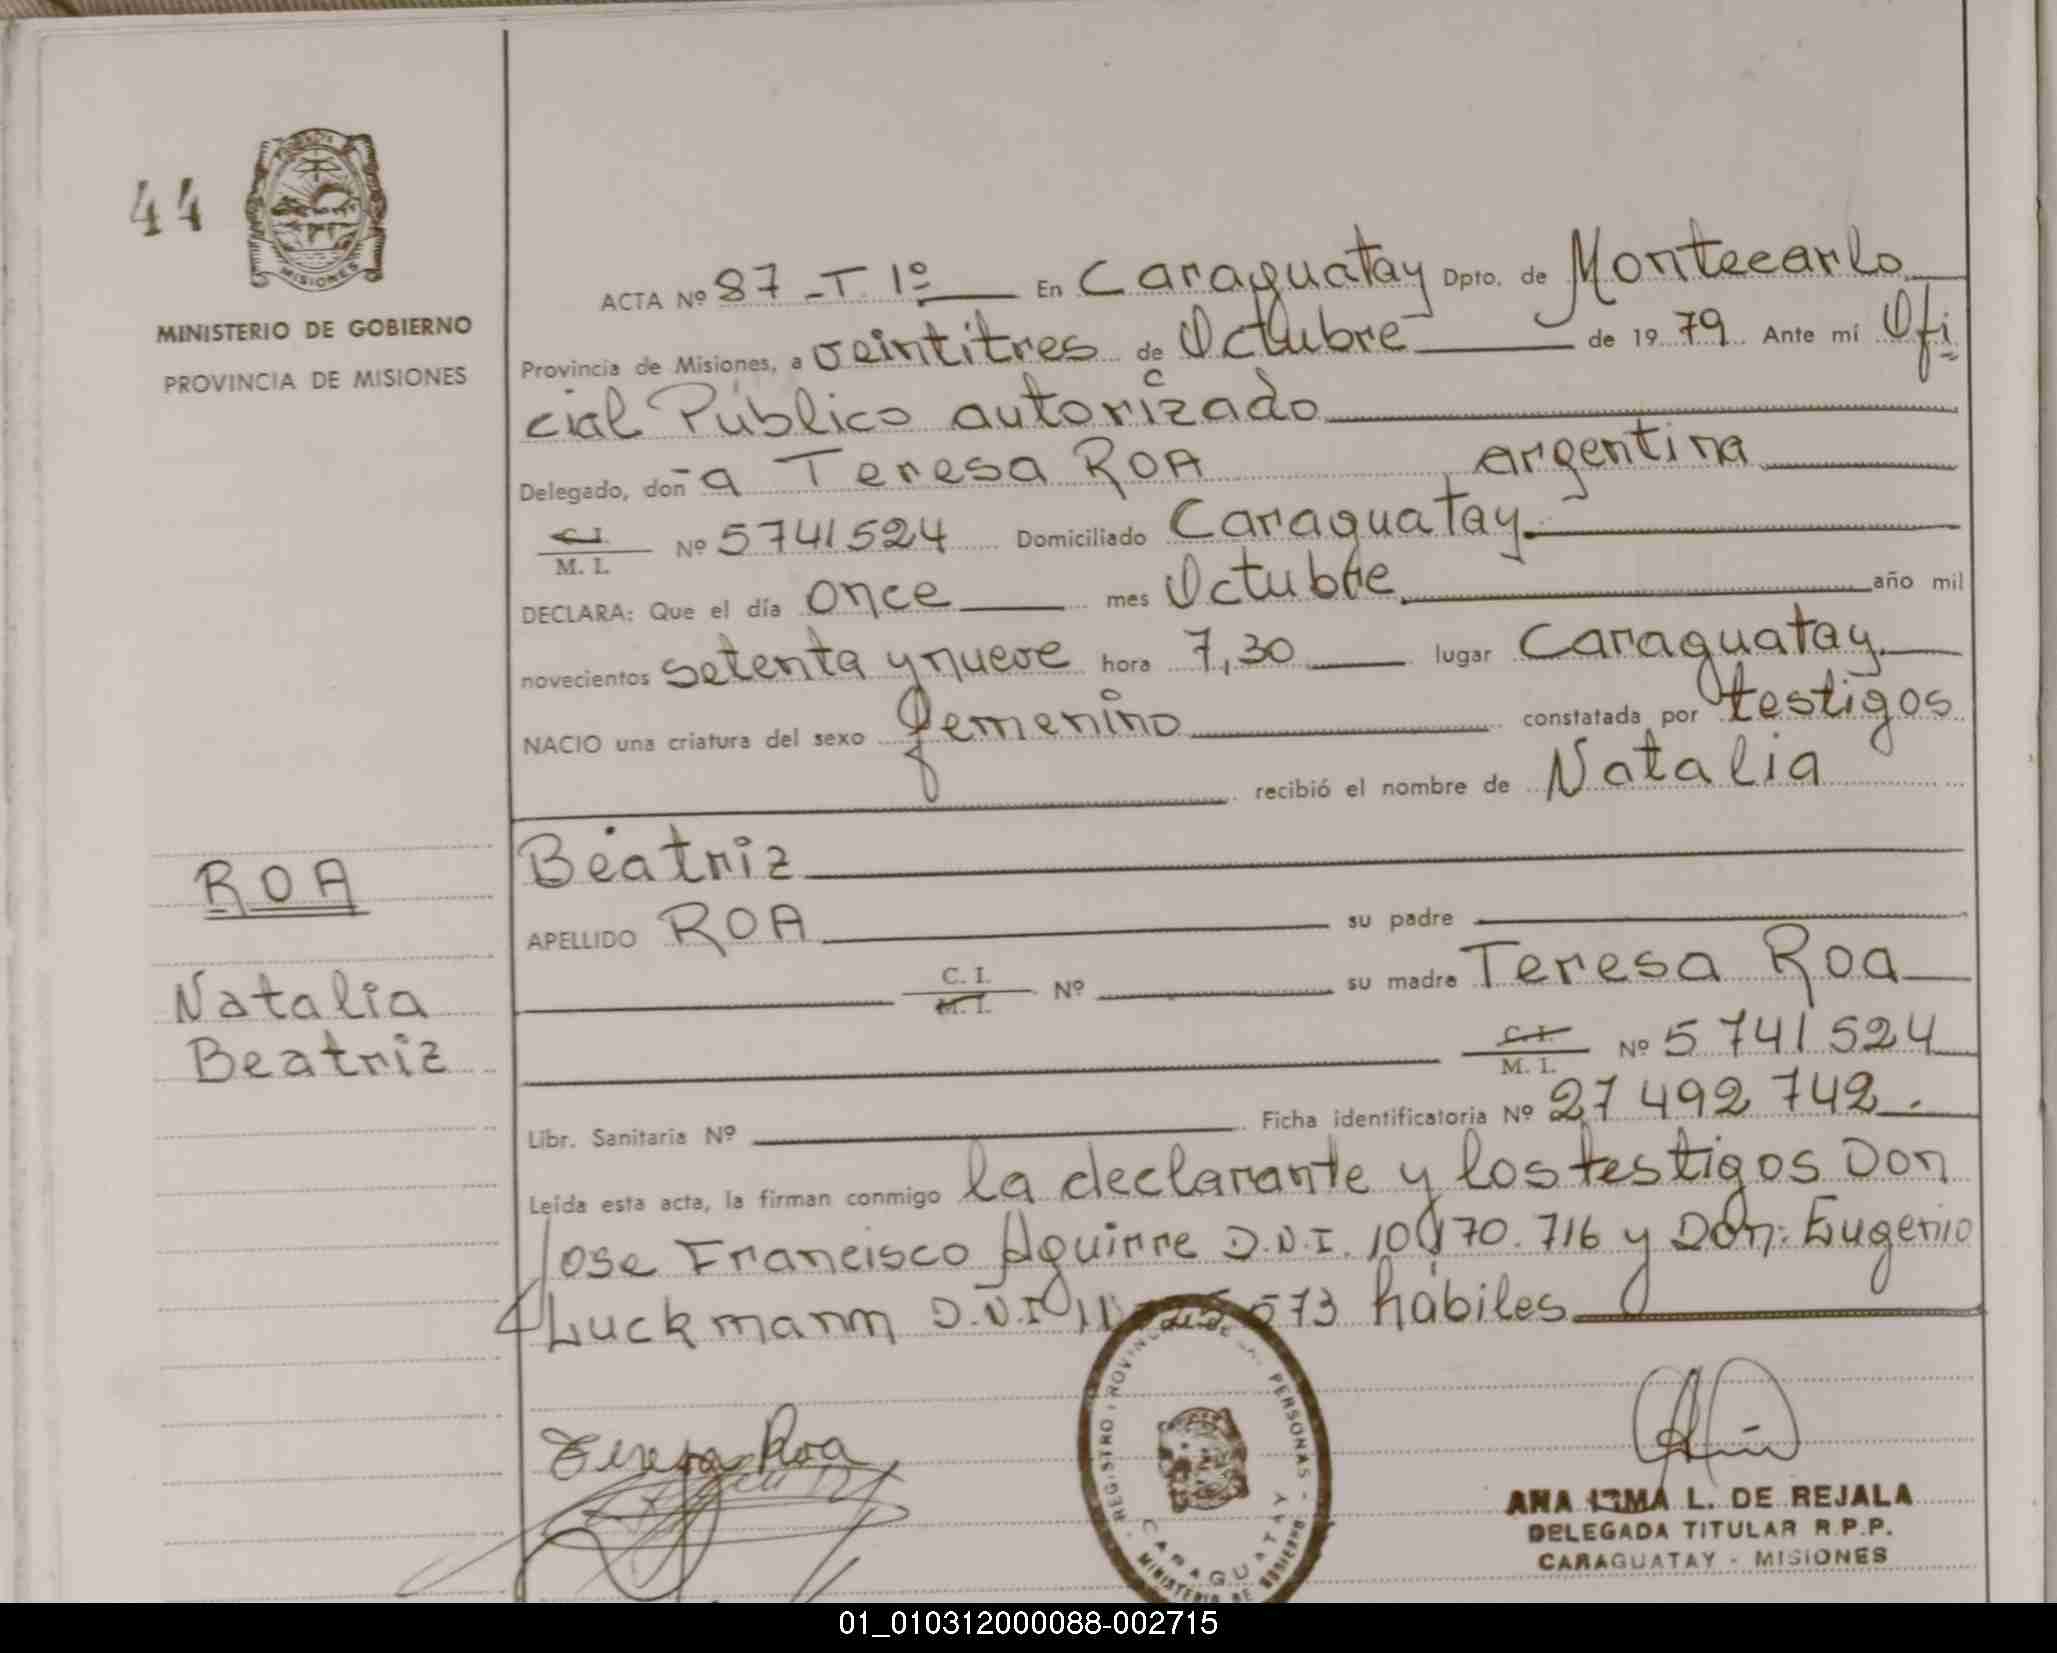 44
MISIONES
MINISTERIO DE GOBIERNO
PROVINCIA DE MISIONES
ROA
Natalia
Beatriz
ACTA Nº 87 - T. 1º En Caraguatay Dpto. de Montecarlo
Provincia de Misiones, a veintitres de Octubre de 1979. Ante mí Ofi
cial Público autorizado
Delegado, doña Teresa ROA argentina
C. I.
M. I. Nº 5741524 Domiciliado Caraguatay
DECLARA: Que el día once mes Octubre año mil
novecientos setenta y nueve hora 7,30 lugar Caraguatay
NACIO una criatura del sexo femenino constatada por testigos
recibió el nombre de Natalia
Beatriz
APELLIDO ROA su padre
C. I.
M. I. Nº su madre Teresa Roa
C. I.
M. I. Nº 5741524
Libr. Sanitaria Nº Ficha identificatoria Nº 27492742.
Leída esta acta, la firman conmigo la declarante y los testigos Don
Jose Francisco Aguirre D.N.I. 10 170.716 y Don: Eugenio
Luckmann D.N.I 573 hábiles
Teresa Roa
REGISTRO PERSONAS - MINISTERIO DE GOBIERNO
CARAGUATAY
L. DE REJALA
DELEGADA TITULAR R.P.P.
CARAGUATAY - MISIONES
01_010312000088-002715